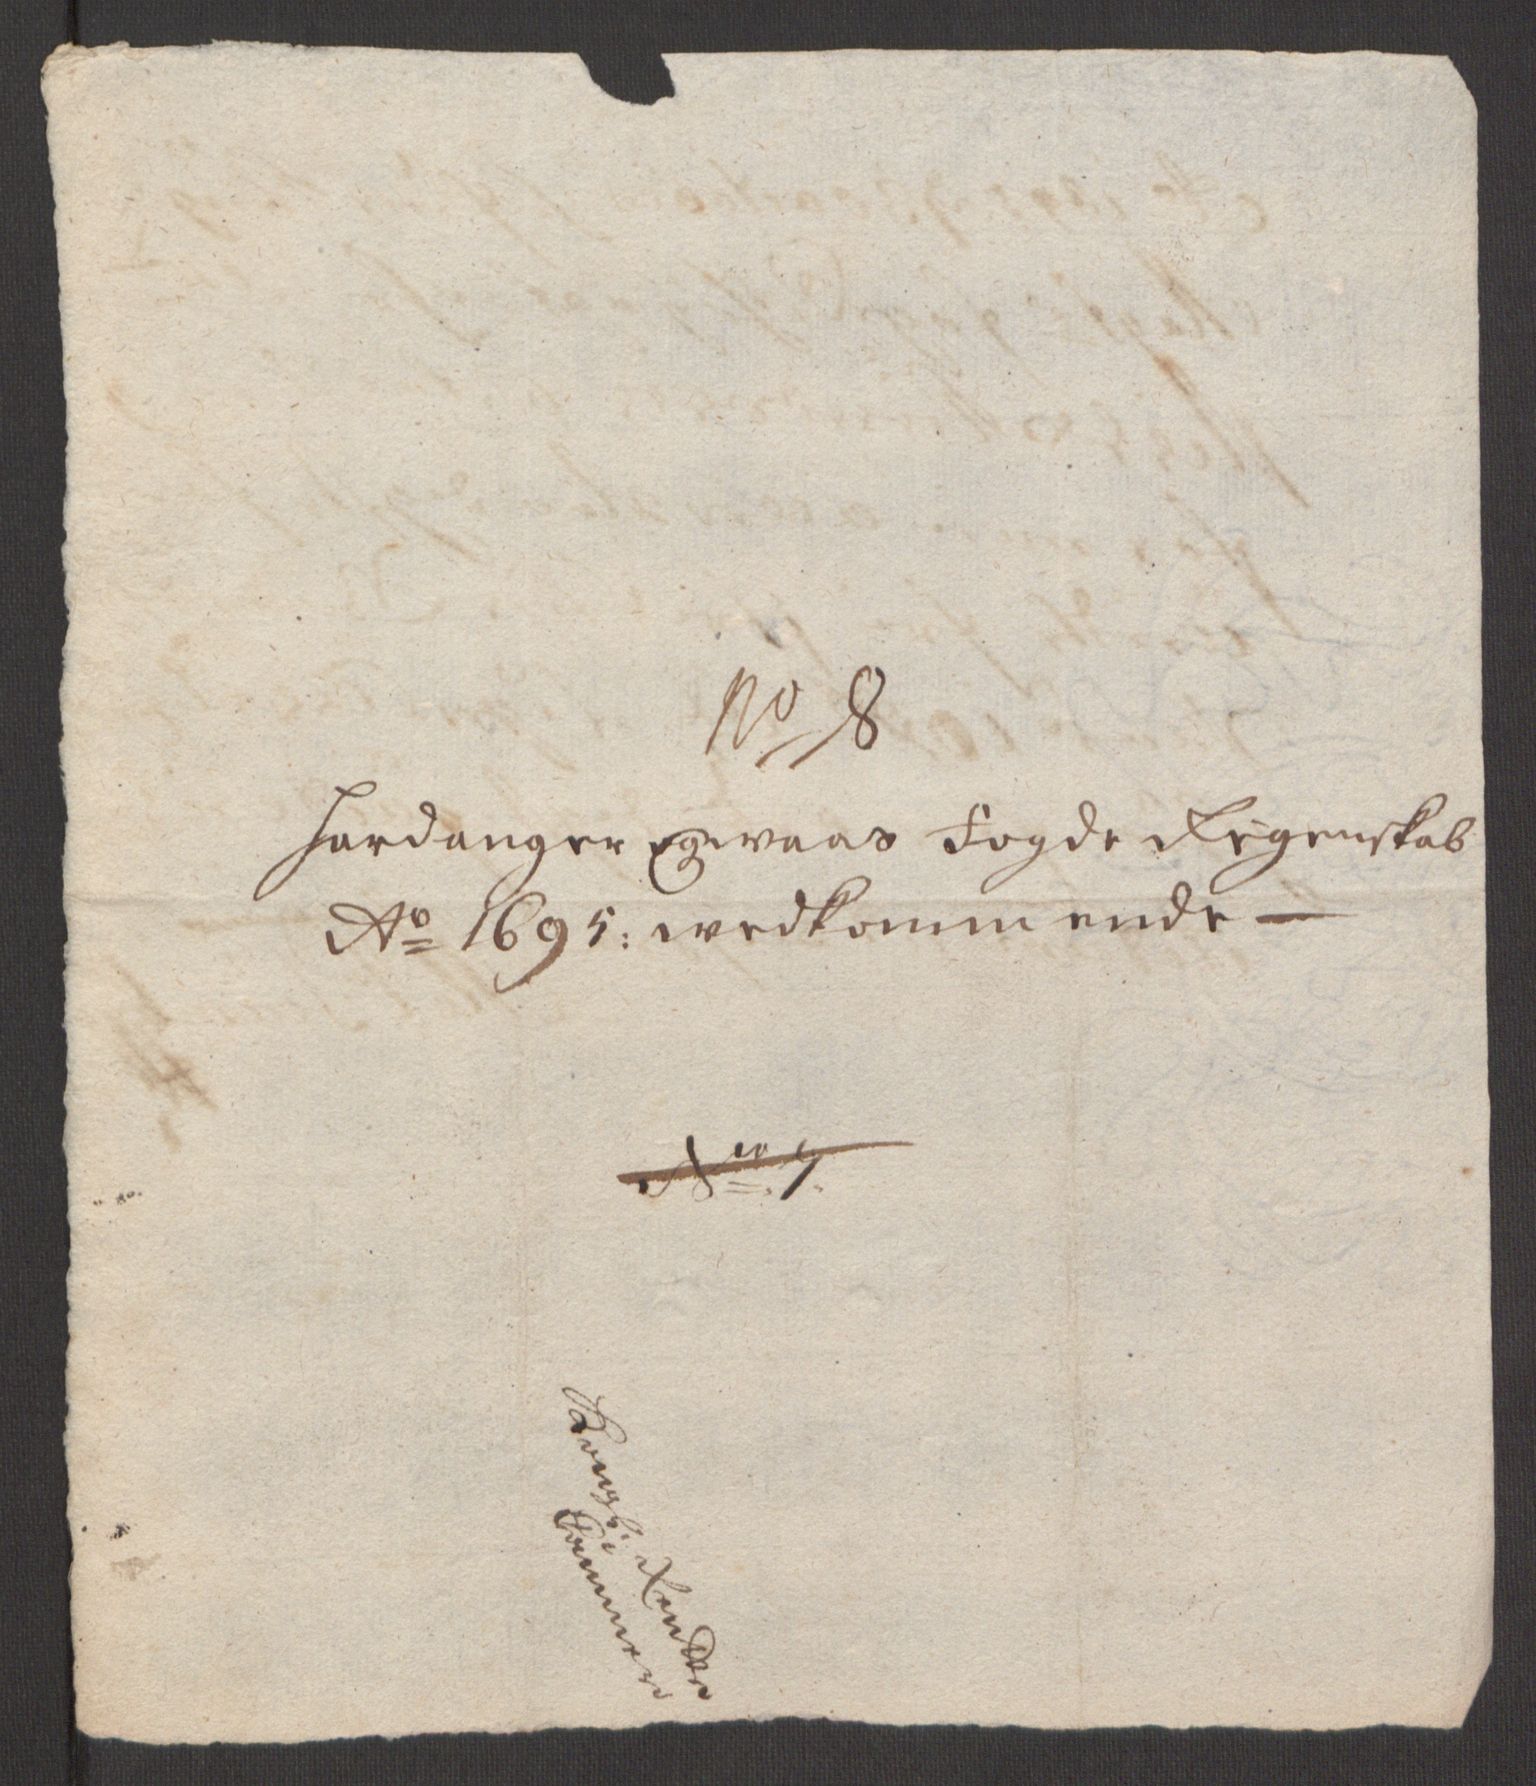 No 8
Hardanger og waas Fogde Regenskab
Ao 1695: wedkommende —
No. 7.
Kongl: Rendte
Cammerr